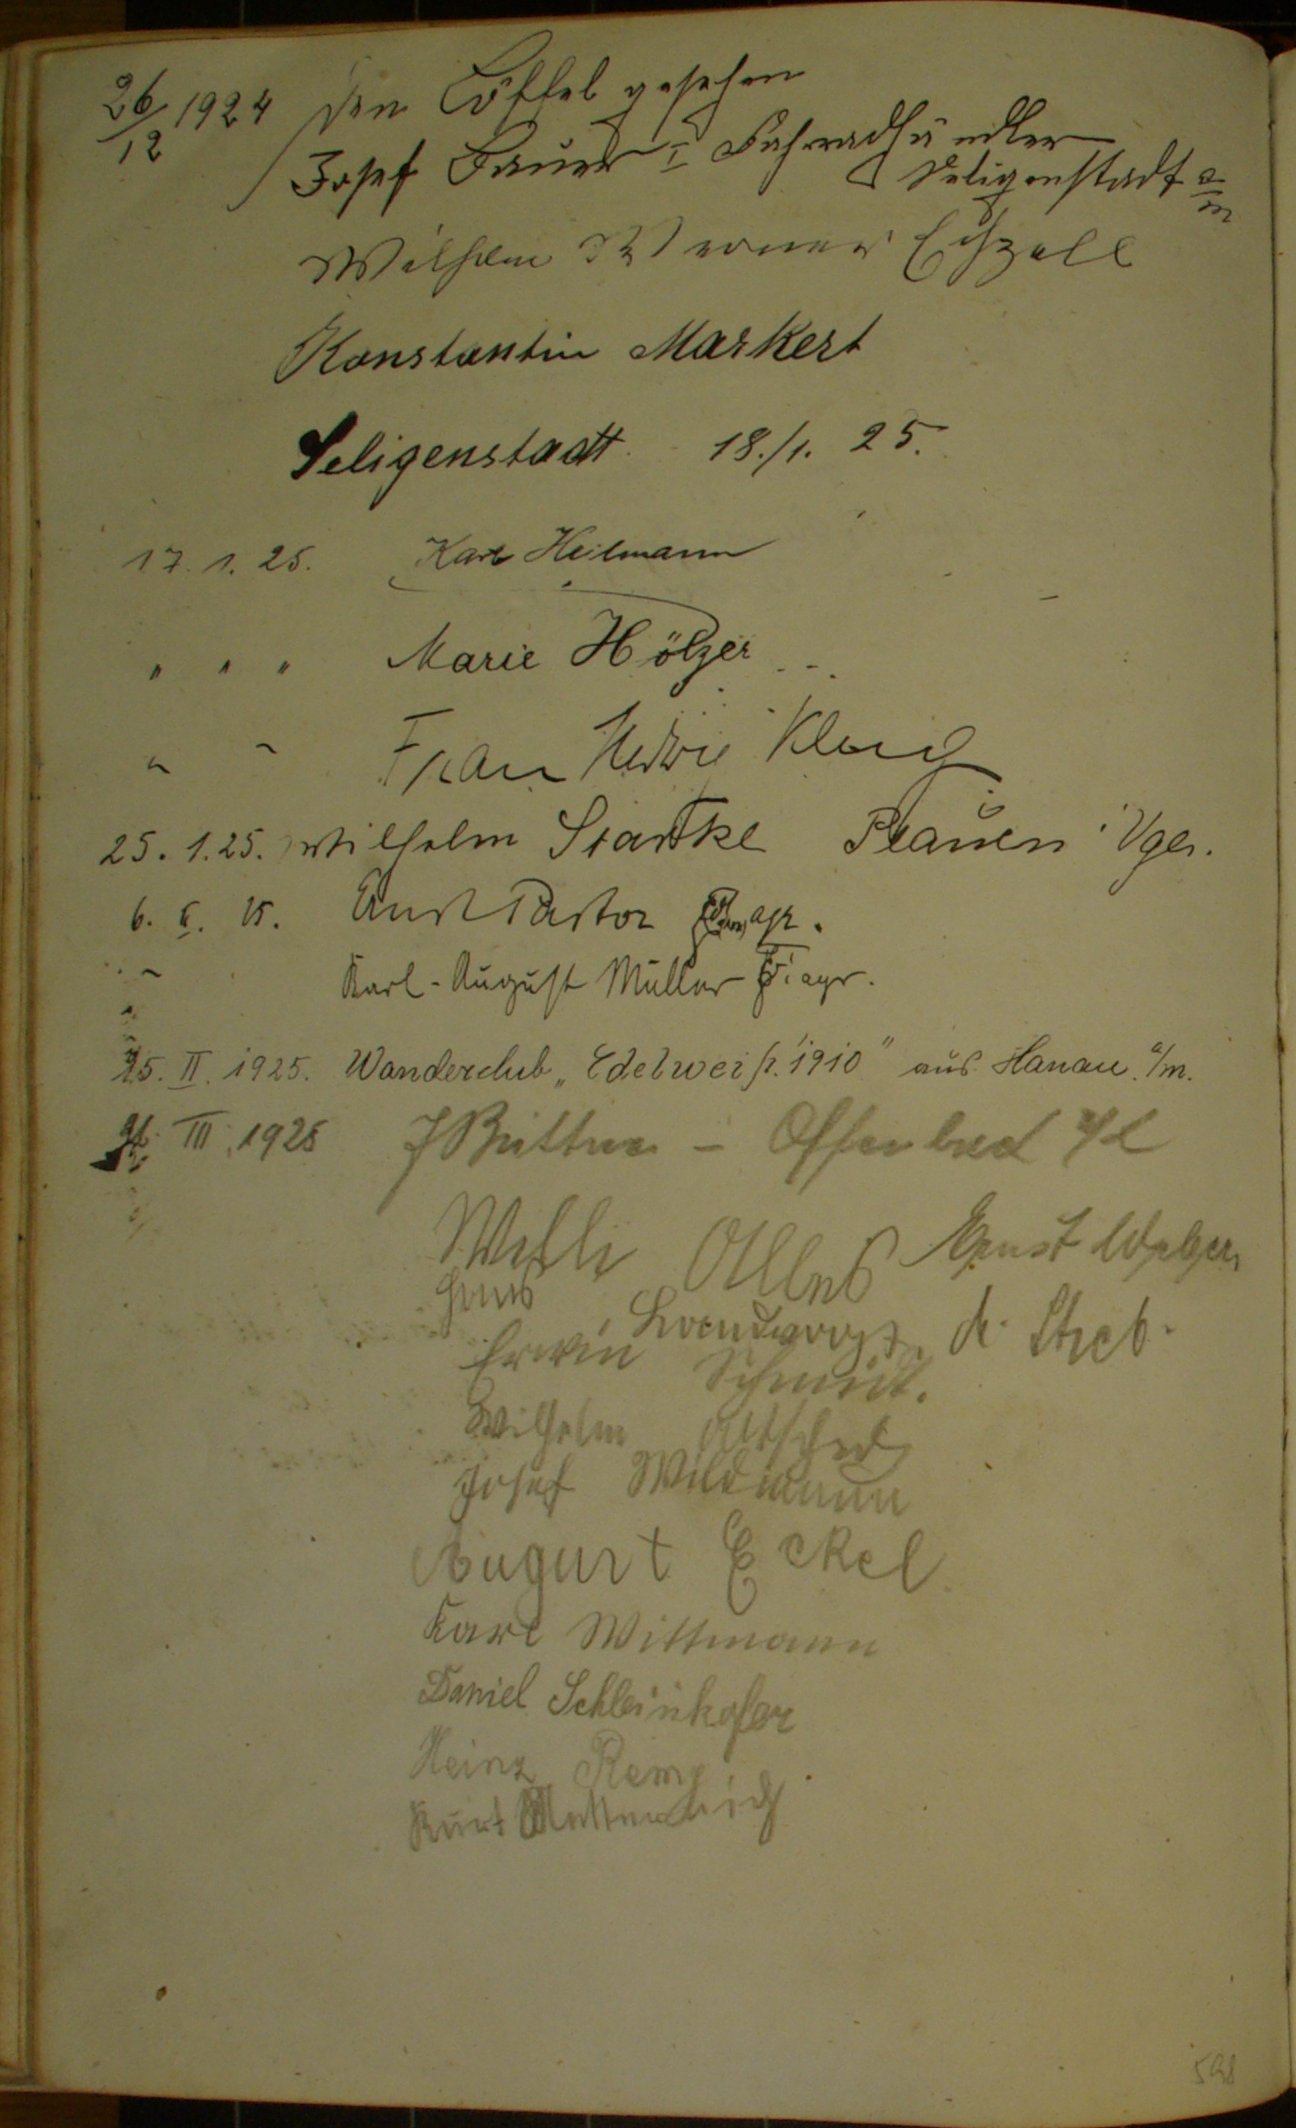 26/12 1924 den Löffel gesehen
Josef Bauer I Fahrradhändler
Seligenstadt a/m
Wilhelm Werner Echzell
Konstantin Markert
Seligenstadt 18./1. 25.
17. 1. 25. Karl Heilmann
" " " Marie Hölzer
Frau
25. 1. 25. Wilhelm Starke Plauen i Vgl.
6. II. 25. Ernst Pastor
Karl-August Müller
25. II. 1925. Wanderclub „Edelweiß 1910" aus Hanau a/m.
III. 1925 J Büttner – Offenbach
Willi Ernst Weber
Hans
K. Streb.
Erwin Schmidt.
Wilhelm
Josef Wildmann
August Eckel
Karl Wittmann
Daniel Schleinkofer
Heinz
Kurt
598